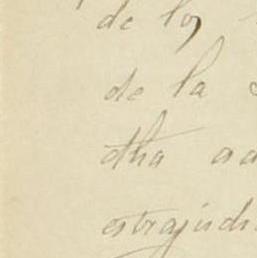 de los
de la
dha
estrajudi